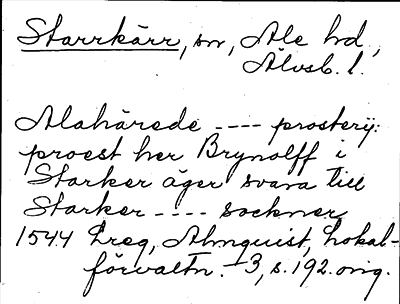 Starrkärr, sn, Ale hd,
Älvsb. l.
Alahärede ---- prosterij:
proest her Brynolff i
Starker äger svara till
Starker ---- sockner
1544 Lreg, Almquist, Lokal-
förvaltn. 3, s. 192. orig.